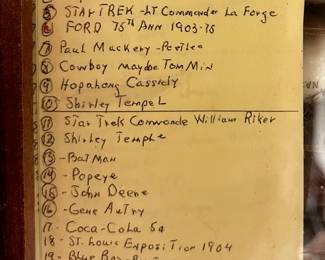 5 STAR TREK - LT Commander La Forge
6 FORD 75th ANN 1903-78
7 Paul Mackery -
8 Cowboy maybe Tom Mix
9 Hopahong Cassidy
10 Shirley Tempel
11 STar Trek Commande William Riker
12 Shirley Temple
13 - BaTMan
14 - Popeye
15 - John Deere
16 - Gene Autry
17 - Coca-Cola 5¢
18 - St. Louis Exposition 1904
19 - Blue